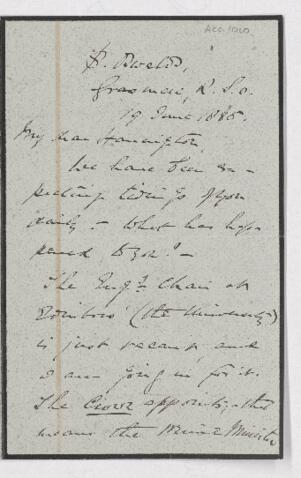 Grasmere, R.S.O.
19 June 1885.
My dear Harrington,
We have been ex-
pecting tidings of you
daily. - What has hap-
pened to you? -
The Eng. Chair at
Edinboro' (the University)
is just vacant, and
I am going in for it.
The Crown appoints, - that
means the Prime Minister